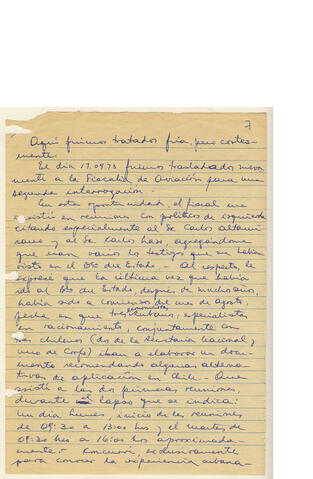 7
Aquí fuimos tratados fría, pero cortes-
mente.
El día 17.09.73 fuimos trasladados nueva
mente a la Fiscalía de Aviación para una
segunda interrogación.-
En esta oportunidad, el fiscal me
insistió en reuniones con políticos de izquierda
citando especialmente al Sr Carlos Altami-
rano y al Sr Carlos Lazo, agregándome
que eran varios los testigos que me habían
visto en el Bco del Estado.- Al respecto, le
expresé que la última vez que había
ido al Bco del Estado, después de muchos años,
había sido a comienzos del mes de agosto,
fecha en que tres economistas cubanos, especialistas
en racionamiento, conjuntamente con
tres chilenos (dos de la Secretaría Nacional y
uno de Corfo) iban a elaborar un docu-
mento recomendando algunas alterna-
tivas de aplicación en Chile.- Que
asistí a las dos primeras reuniones
durante el lapso que se indica:
Un día lunes, inicio de las reuniones
de 09:30 a 13:00 hrs y el martes de
09:30 hrs a 16:00 hrs aproximada-
mente.- Concurrí, exclusivamente
para conocer la experiencia cubana-